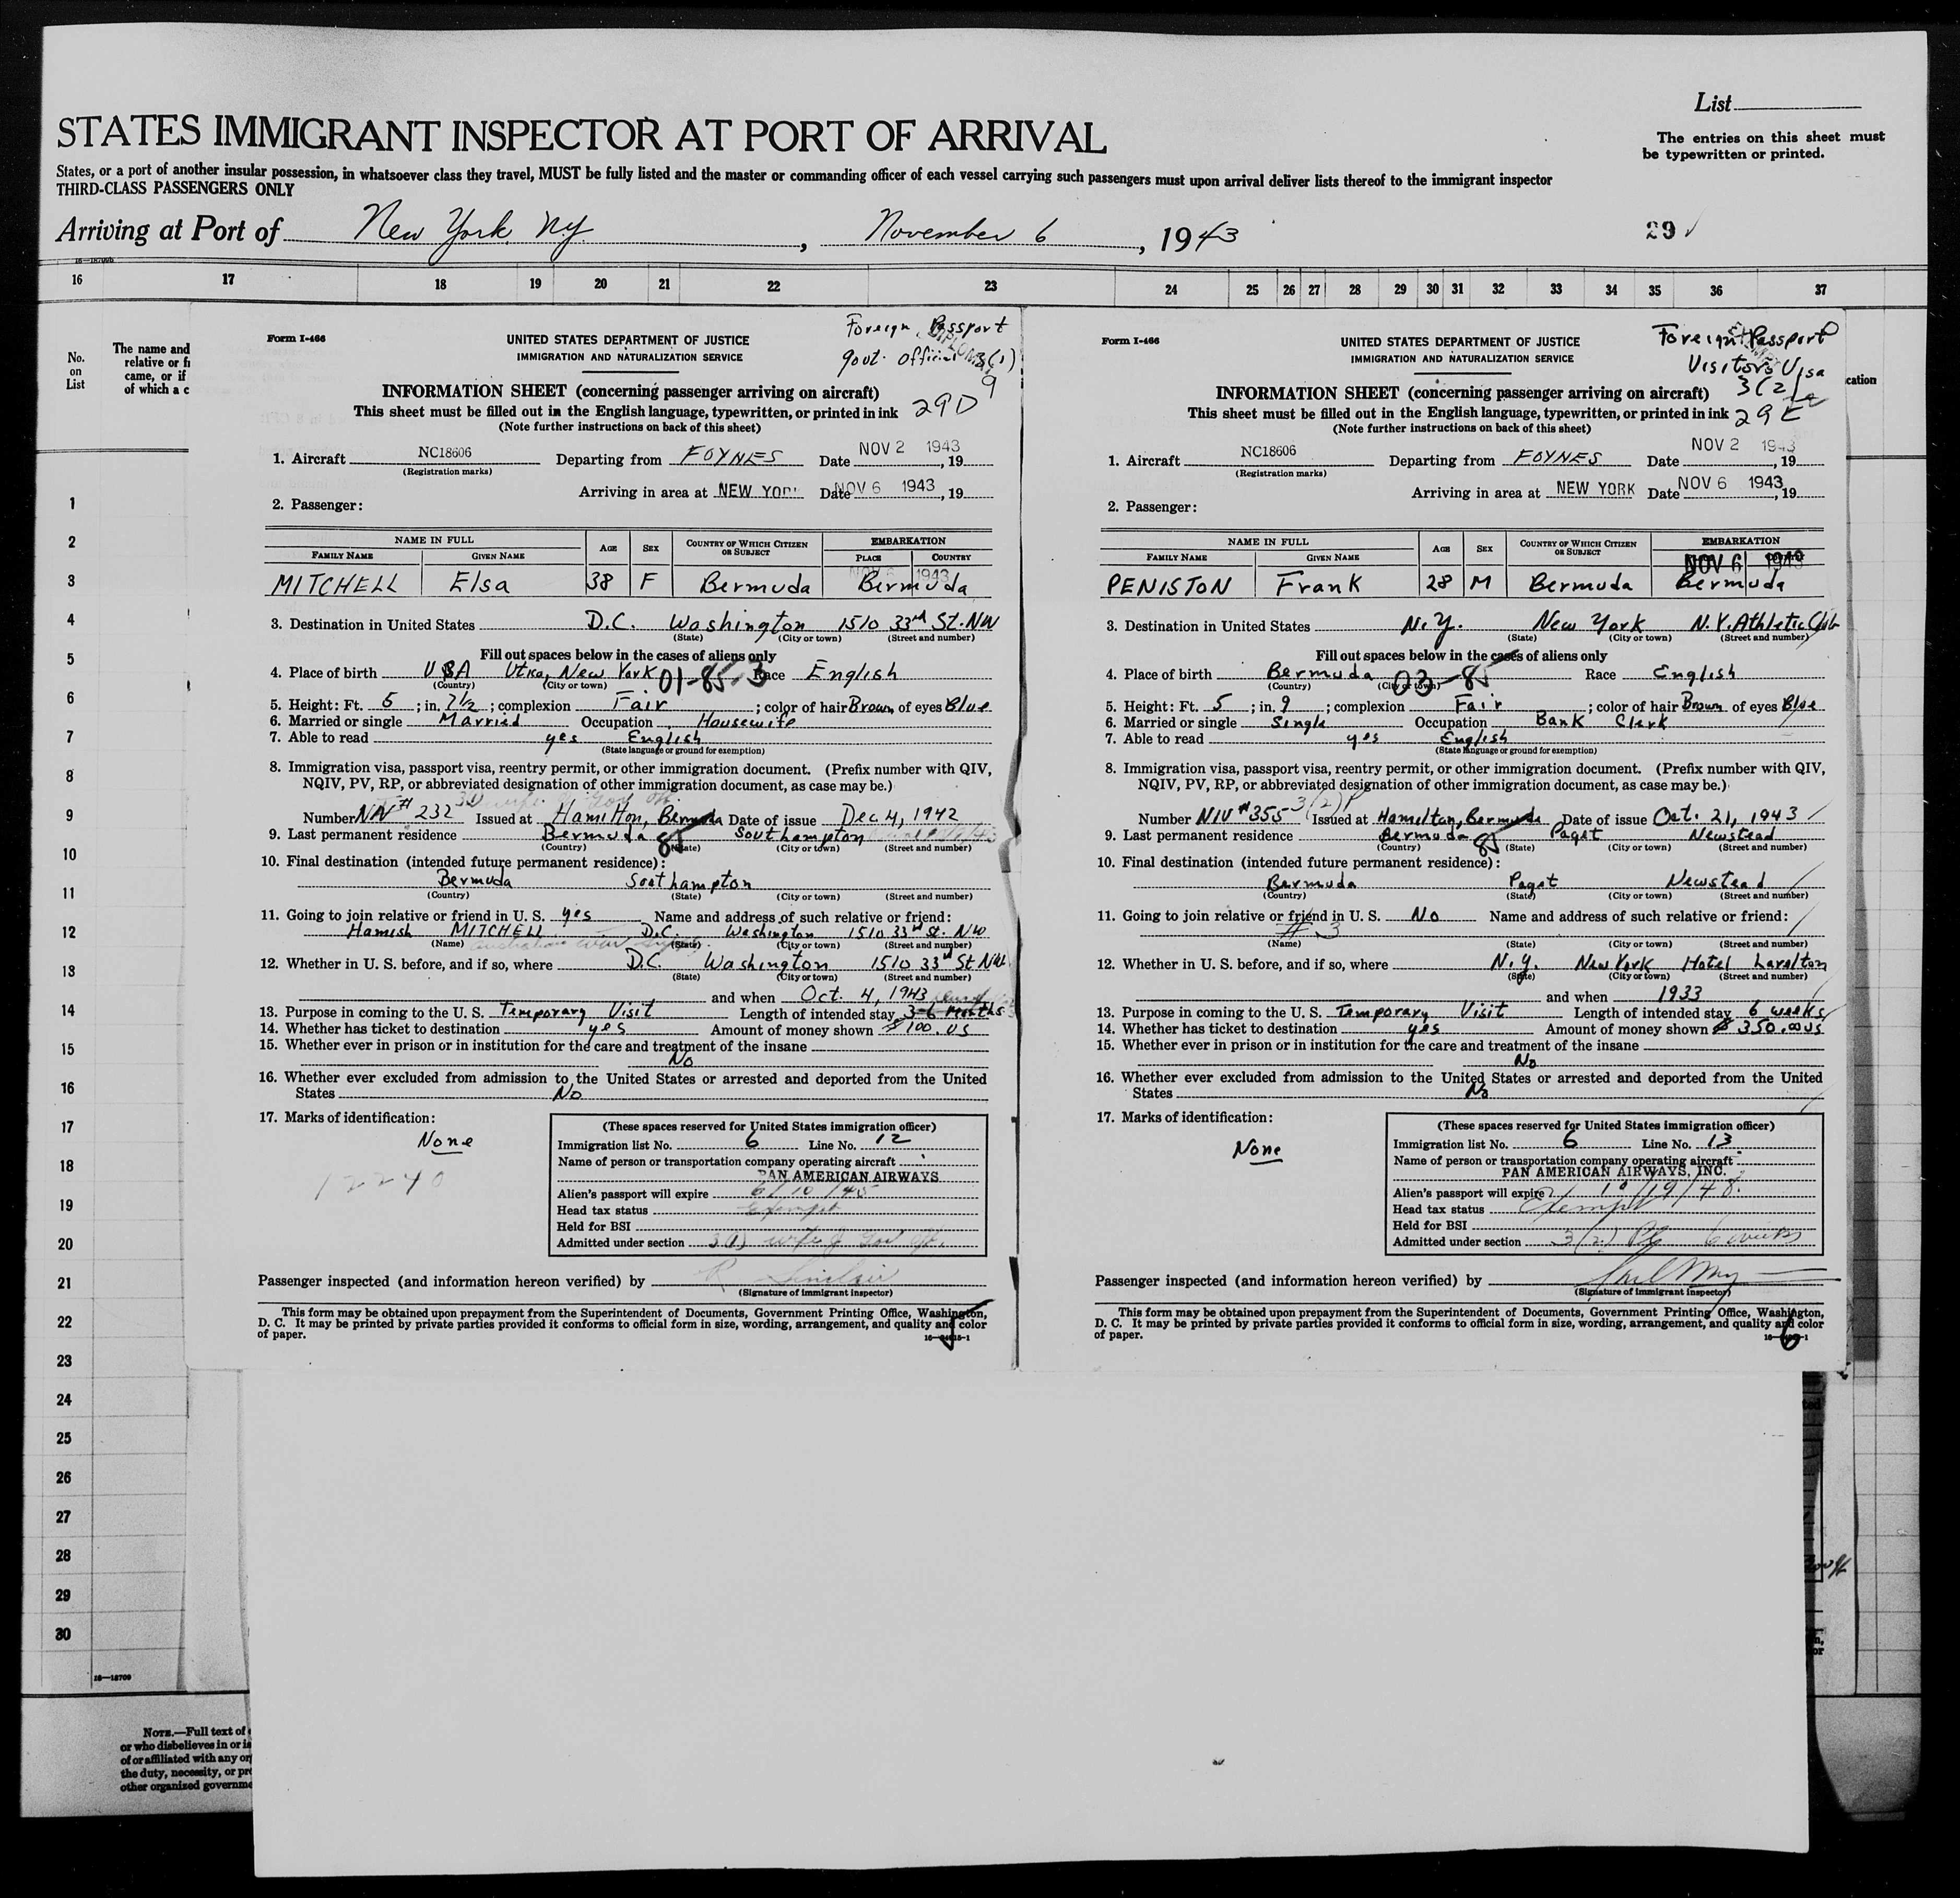 List
STATES IMMIGRANT INSPECTOR AT PORT OF ARRIVAL
The entries on this sheet must
be typewritten or printed.
States, or a port of another insular possession, in whatsoever class they travel, MUST be fully listed and the master or commanding officer of each vessel carrying such passengers must upon arrival deliver lists thereof to the immigrant inspector
THIRD-CLASS PASSENGERS ONLY
Arriving at Port of New York, N.Y. , November 6 , 1943
29
16 17 18 19 20 21 22 23 24 25 26 27 28 29 30 31 32 33 34 35 36 37
No.
on
List
The name and
relative or fi
came, or if
of which a c
cation
1
2
3
4
5
6
7
8
9
10
11
12
13
14
15
16
17
18
19
20
21
22
23
24
25
26
27
28
29
30
16—18709
NOTE.—Full text of
or who disbelieves in or is
of or affiliated with any or
the duty, necessity, or pr
other organized governme
Form I-466
UNITED STATES DEPARTMENT OF JUSTICE
IMMIGRATION AND NATURALIZATION SERVICE
Foreign Passport
Govt. official 3(1)
9
INFORMATION SHEET (concerning passenger arriving on aircraft)
This sheet must be filled out in the English language, typewritten, or printed in ink
29D
(Note further instructions on back of this sheet)
1. Aircraft NC18606 Departing from FOYNES Date NOV 2 1943, 19
(Registration marks)
Arriving in area at NEW YORK Date NOV 6 1943, 19
2. Passenger:
NAME IN FULL AGE SEX COUNTRY OF WHICH CITIZEN OR SUBJECT EMBARKATION
FAMILY NAME GIVEN NAME PLACE COUNTRY
MITCHELL Elsa 38 F Bermuda Bermuda
3. Destination in United States D.C. Washington 1510 33rd St. NW
(State) (City or town) (Street and number)
Fill out spaces below in the cases of aliens only
4. Place of birth USA Utka, New York 01-85-3 Race English
(Country) (City or town)
5. Height: Ft. 5 ; in. 7½ ; complexion Fair ; color of hair Brown of eyes Blue
6. Married or single Married Occupation Housewife
7. Able to read yes English
(State language or ground for exemption)
8. Immigration visa, passport visa, reentry permit, or other immigration document. (Prefix number with QIV,
NQIV, PV, RP, or abbreviated designation of other immigration document, as case may be.)
Number NIV # 232 Issued at Hamilton, Bermuda Date of issue Dec 4, 1942
9. Last permanent residence Bermuda 85 Southampton
(Country) (State) (City or town) (Street and number)
10. Final destination (intended future permanent residence):
Bermuda Southampton
(Country) (State) (City or town) (Street and number)
11. Going to join relative or friend in U. S. yes Name and address of such relative or friend:
Hamish MITCHELL D.C. Washington 1510 33rd St. NW
(Name) (State) (City or town) (Street and number)
12. Whether in U. S. before, and if so, where D.C. Washington 1510 33rd St NW
(State) (City or town) (Street and number)
and when Oct. 4, 1943
13. Purpose in coming to the U. S. Temporary Visit Length of intended stay 3-6 Months
14. Whether has ticket to destination yes Amount of money shown $100. US
15. Whether ever in prison or in institution for the care and treatment of the insane
No
16. Whether ever excluded from admission to the United States or arrested and deported from the United
States No
17. Marks of identification:
None
12240
(These spaces reserved for United States immigration officer)
Immigration list No. 6 Line No. 12
Name of person or transportation company operating aircraft
PAN AMERICAN AIRWAYS
Alien's passport will expire 6/10/45
Head tax status Exempt
Held for BSI
Admitted under section 3(1) wife of Gov of.
Passenger inspected (and information hereon verified) by R Sinclair
(Signature of immigrant inspector)
This form may be obtained upon prepayment from the Superintendent of Documents, Government Printing Office, Washington,
D. C. It may be printed by private parties provided it conforms to official form in size, wording, arrangement, and quality and color
of paper.
Form I-466
UNITED STATES DEPARTMENT OF JUSTICE
IMMIGRATION AND NATURALIZATION SERVICE
Foreign Passport
Visitors Visa
3(2)
INFORMATION SHEET (concerning passenger arriving on aircraft)
This sheet must be filled out in the English language, typewritten, or printed in ink
29E
(Note further instructions on back of this sheet)
1. Aircraft NC18606 Departing from FOYNES Date NOV 2 1943, 19
(Registration marks)
Arriving in area at NEW YORK Date NOV 6 1943, 19
2. Passenger:
NAME IN FULL AGE SEX COUNTRY OF WHICH CITIZEN OR SUBJECT EMBARKATION
FAMILY NAME GIVEN NAME NOV 6 1943
PENISTON Frank 28 M Bermuda Bermuda
3. Destination in United States N.Y. New York N.Y. Athletic Club
(State) (City or town) (Street and number)
Fill out spaces below in the cases of aliens only
4. Place of birth Bermuda 03-85 Race English
(Country) (City or town)
5. Height: Ft. 5 ; in. 9 ; complexion Fair ; color of hair Brown of eyes Blue
6. Married or single Single Occupation Bank Clerk
7. Able to read yes English
(State language or ground for exemption)
8. Immigration visa, passport visa, reentry permit, or other immigration document. (Prefix number with QIV,
NQIV, PV, RP, or abbreviated designation of other immigration document, as case may be.)
Number NIV # 355 3(2)P Issued at Hamilton, Bermuda Date of issue Oct. 21, 1943
9. Last permanent residence Bermuda 85 Paget Newstead
(Country) (State) (City or town) (Street and number)
10. Final destination (intended future permanent residence):
Bermuda Paget Newstead
(Country) (State) (City or town) (Street and number)
11. Going to join relative or friend in U. S. No Name and address of such relative or friend:
# 3
(Name) (State) (City or town) (Street and number)
12. Whether in U. S. before, and if so, where N.Y. New York Hotel Larelton
(State) (City or town) (Street and number)
and when 1933
13. Purpose in coming to the U. S. Temporary Visit Length of intended stay 6 weeks
14. Whether has ticket to destination yes Amount of money shown $ 350.00 US
15. Whether ever in prison or in institution for the care and treatment of the insane
No
16. Whether ever excluded from admission to the United States or arrested and deported from the United
States No
17. Marks of identification:
None
(These spaces reserved for United States immigration officer)
Immigration list No. 6 Line No. 13
Name of person or transportation company operating aircraft
PAN AMERICAN AIRWAYS, INC.
Alien's passport will expire 10/19/48.
Head tax status Exempt
Held for BSI
Admitted under section 3(2) 6 weeks
Passenger inspected (and information hereon verified) by
(Signature of immigrant inspector)
This form may be obtained upon prepayment from the Superintendent of Documents, Government Printing Office, Washington,
D. C. It may be printed by private parties provided it conforms to official form in size, wording, arrangement, and quality and color
of paper.
6